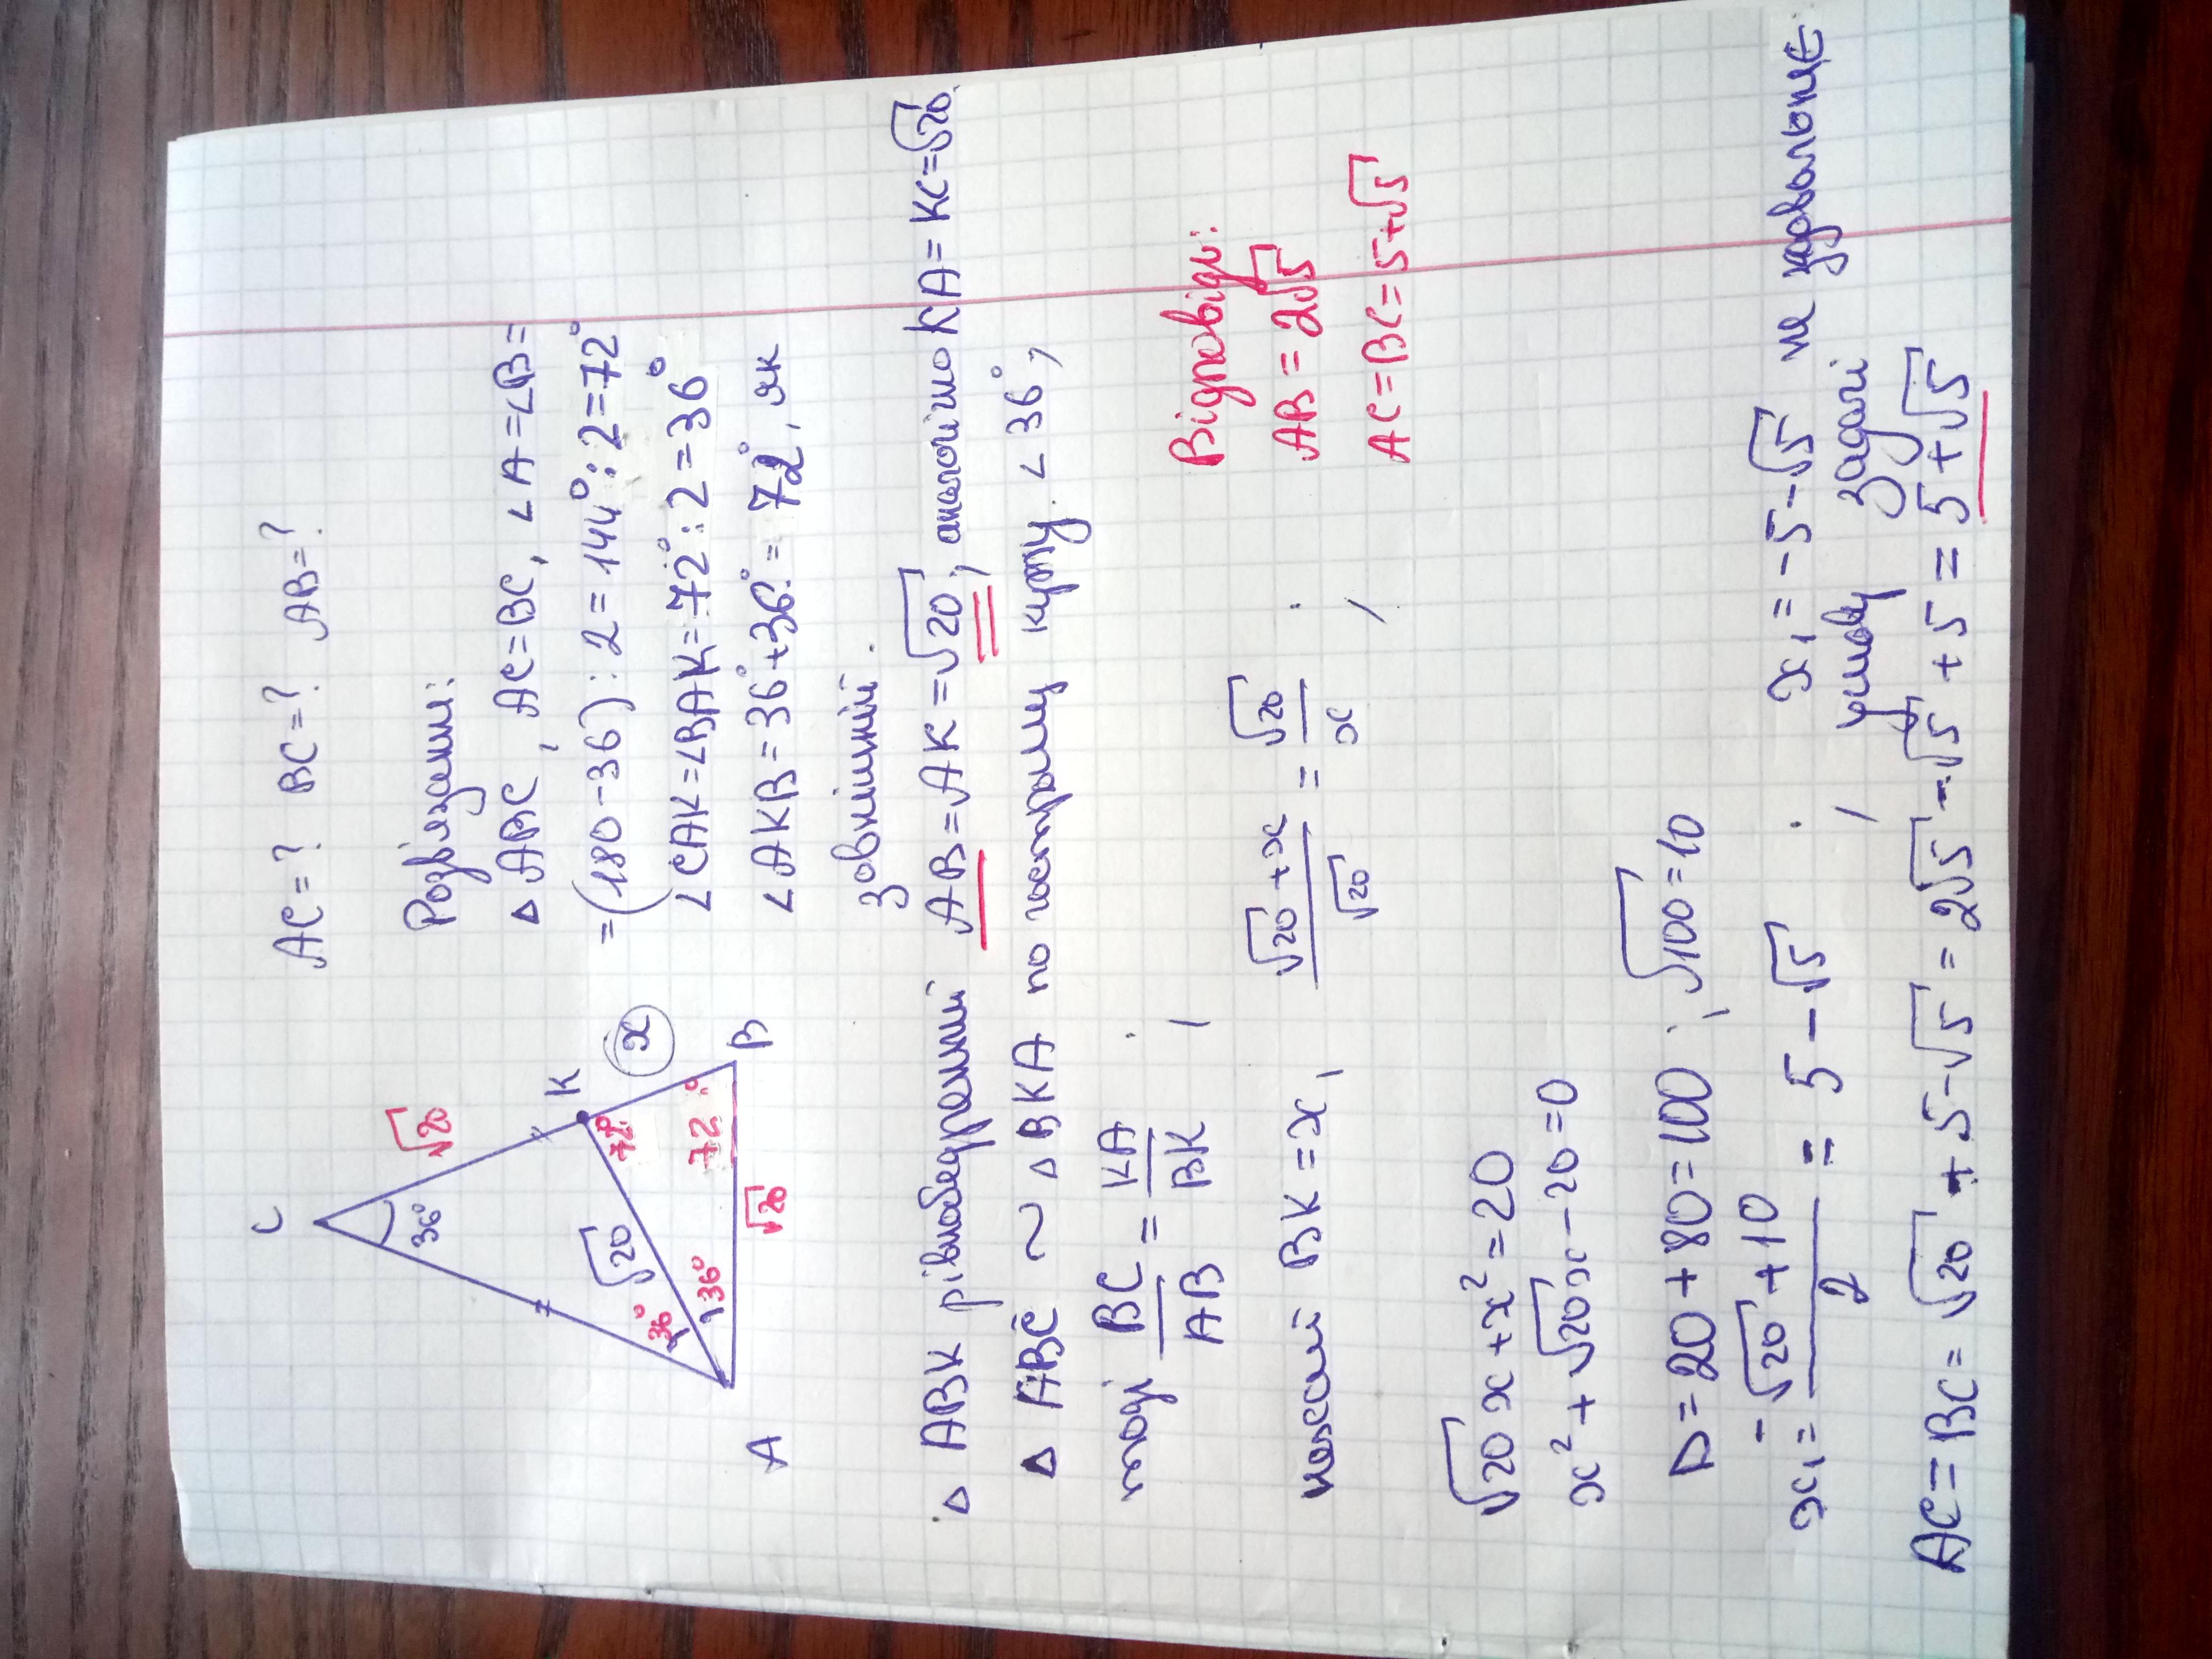 AC=? BC=? AB=?
Розв'язання:
△ ABC, AC=BC, ∠A=∠B=
=(180-36):2=144°:2=72°
∠CAK=∠BAK=72°:2=36°
∠AKB=36°+36°=72°, як
зовнішній.
C
√20
36°
K
x
√20
72°
36°
36°
72°
A
√20
B
△ ABK рівнобедрений AB=AK=√20, аналогічно KA=KC=√20.
△ ABC ~ △ BKA по гострому куту ∠36°,
тоді BC/AB = KA/BK ;
нехай BK=x, (√20+x)/√20 = √20/x ;
√20x+x²=20
x²+√20x-20=0
D=20+80=100; √100=10
x₁=(-√20+10)/2 = 5-√5 ; x₁=-5-√5 не задовольняє
умову задачі
AC=BC=√20+5-√5=2√5-√5+5=5+√5
Відповідь:
AB=2√5
AC=BC=5+√5